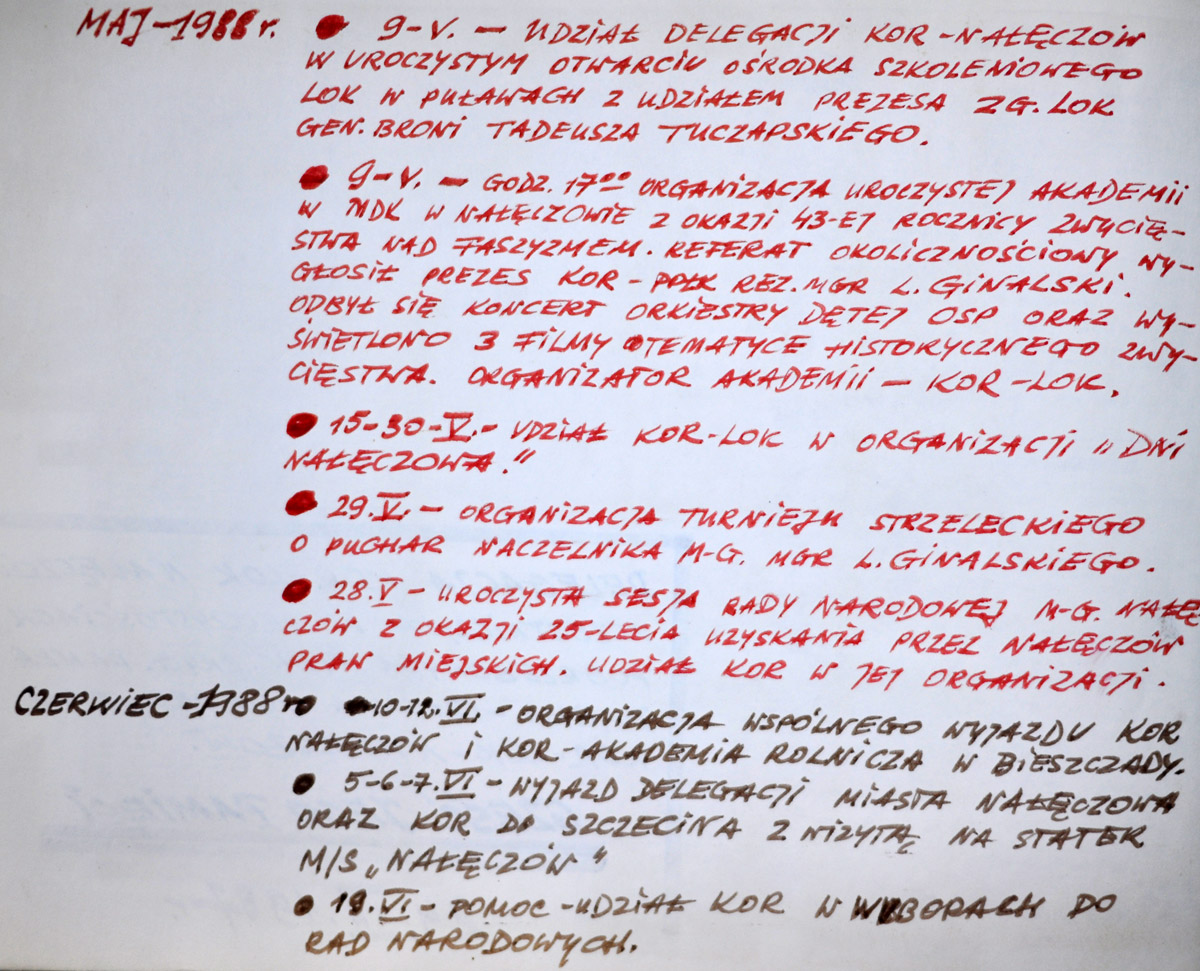 MAJ-1988 r. ● 9-V. — UDZIAŁ DELEGACJI KOR-NAŁĘCZÓW
W UROCZYSTYM OTWARCIU OŚRODKA SZKOLENIOWEGO
LOK W PUŁAWACH Z UDZIAŁEM PREZESA ZG. LOK
GEN. BRONI TADEUSZA TUCZAPSKIEGO.
● 9-V. — GODZ. 17⁰⁰ ORGANIZACJA UROCZYSTEJ AKADEMII
W MDK W NAŁĘCZOWIE Z OKAZJI 43-EJ ROCZNICY ZWYCIĘ-
STWA NAD FASZYZMEM. REFERAT OKOLICZNOŚCIOWY WY-
GŁOSIŁ PREZES KOR - PPŁK REZ. MGR L. GINALSKI.
ODBYŁ SIĘ KONCERT ORKIESTRY DĘTEJ OSP ORAZ WY-
ŚWIETLONO 3 FILMY O TEMATYCE HISTORYCZNEGO ZWY-
CIĘSTWA. ORGANIZATOR AKADEMII — KOR-LOK.
● 15-30-V.- UDZIAŁ KOR-LOK W ORGANIZACJI „DNI
NAŁĘCZOWA."
● 29.V. — ORGANIZACJA TURNIEJU STRZELECKIEGO
O PUCHAR NACZELNIKA M-G. MGR L. GINALSKIEGO.
● 28.V - UROCZYSTA SESJA RADY NARODOWEJ M-G. NAŁĘ
CZÓW Z OKAZJI 25-LECIA UZYSKANIA PRZEZ NAŁĘCZÓW
PRAW MIEJSKICH. UDZIAŁ KOR W JEJ ORGANIZACJI.
CZERWIEC-1988 r ● 10-12.VI. - ORGANIZACJA WSPÓLNEGO WYJAZDU KOR
NAŁĘCZÓW I KOR-AKADEMIA ROLNICZA W BIESZCZADY.
● 5-6-7.VI - WYJAZD DELEGACJI MIASTA NAŁĘCZOWA
ORAZ KOR DO SZCZECINA Z WIZYTĄ NA STATEK
M/S „NAŁĘCZÓW"
● 19.VI - POMOC - UDZIAŁ KOR W WYBORACH DO
RAD NARODOWYCH.